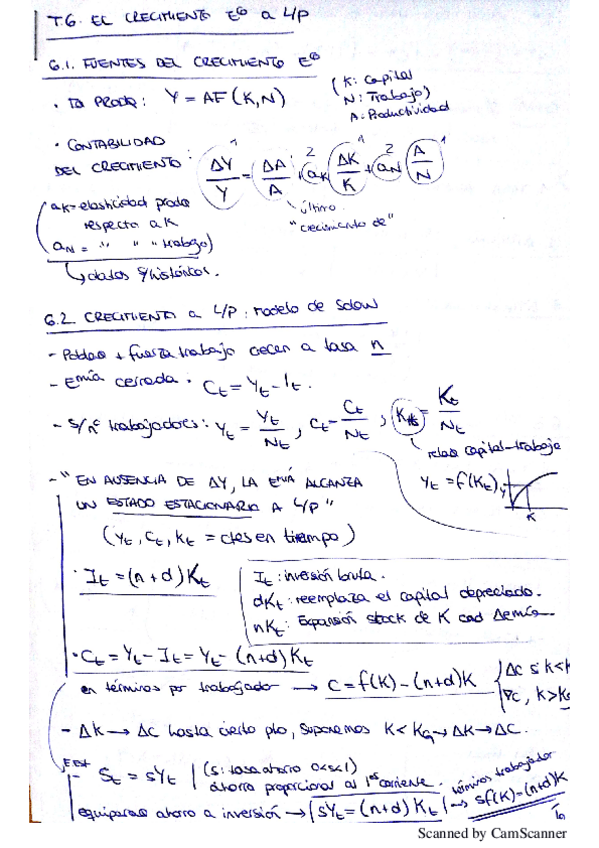 T.6. EL CRECIMIENTO Eº a L/P
6.1. FUENTES DEL CRECIMIENTO Eº
(K: capital
N: Trabajo)
A: Productividad
· Fª PRODº: Y = AF (K,N)
· CONTABILIDAD
DEL CRECIMIENTO: ΔY/Y = ΔA/A + aK ΔK/K + aN A/N
1 2 1 2 1
(aK = elasticidad prodº
respecto a K
aN = " " " trabajo)
último
"crecimiento de"
↳ datos s/históricos.
6.2. CRECIMIENTO a L/P: Modelo de Solow
- Poblac + fuerza trabajo crecen a tasa n
- Emía cerrada. Ct = Yt - It.
- s/nº trabajadores: yt = Yt/Nt, ct = Ct/Nt, Kt = Kt/Nt
relac capital-trabajo
yt = f(Kt)
y
K
- "EN AUSENCIA DE ΔY, LA Emía ALCANZA
UN ESTADO ESTACIONARIO A L/P"
(yt, ct, kt = ctes en tiempo)
· It = (n+d) Kt
It: inversión bruta.
dKt: reemplaza el capital depreciado.
nKt: Expansión stock de K
· Ct = Yt - It = Yt - (n+d) Kt
en términos por trabajador → C = f(K) - (n+d)K
{Δc si k<k
∇c, k>KG
- Δk → Δc hasta cierto pto, suponemos K < KG → ΔK → ΔC.
- St = sYt | (s: tasa ahorro 0<s<1)
ahorro proporcional al corriente.
términos trabajador
equiparar ahorro a inversión → sYt = (n+d) Kt → sf(K) = (n+d)K
Scanned by CamScanner